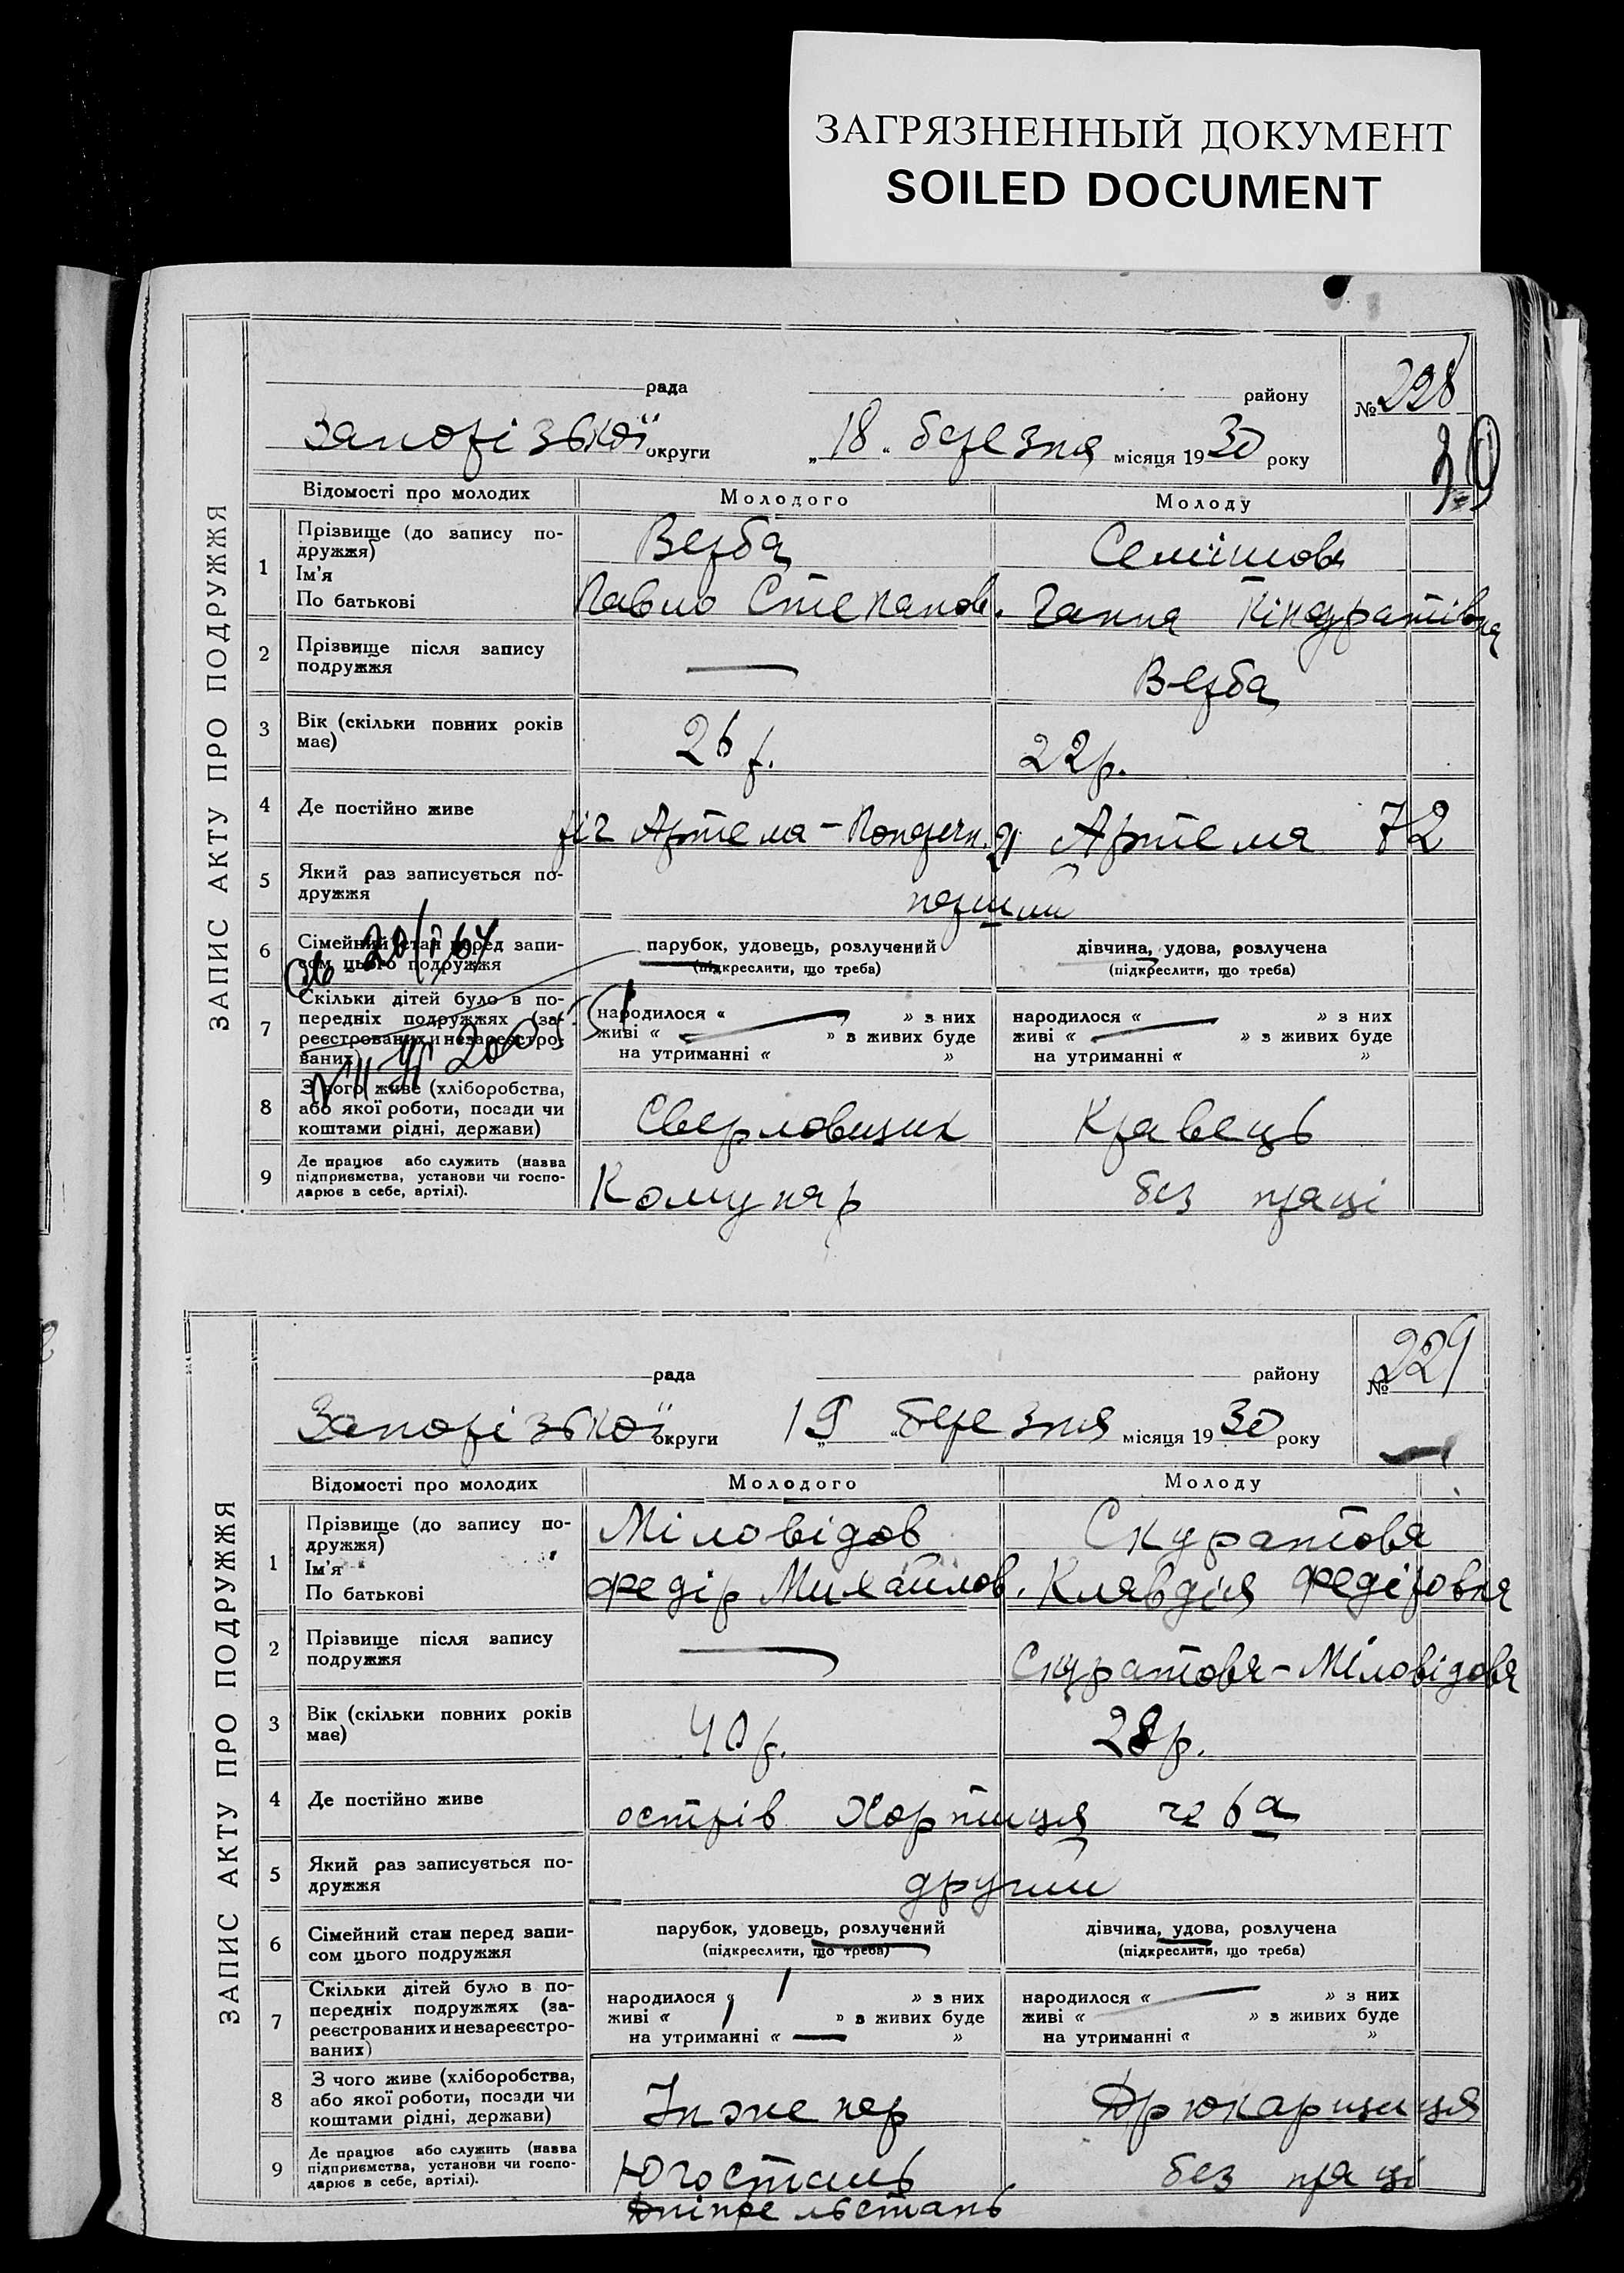 ЗАГРЯЗНЕННЫЙ ДОКУМЕНТ
SOILED DOCUMENT
ЗАПИС АКТУ ПРО ПОДРУЖЖЯ
рада району № 228
Запорізької округи „18“ березня місяця 1930 року
Відомості про молодих Молодого Молоду
1 Прізвище (до запису по-
дружжя) Верба
Ім'я
По батькові Павло Степанов. Ганна Кіндратівна
2 Прізвище після запису
подружжя — Верба
3 Вік (скільки повних років
має) 26 р. 22 р.
4 Де постійно живе ріг Артема - Артема 72
5 Який раз записується по-
дружжя перший
6 Сімейний стан перед запи-
сом цього подружжя парубок, удовець, розлучений дівчина, удова, розлучена
(підкреслити, що треба) (підкреслити, що треба)
7 Скільки дітей було в по-
передніх подружжях (за-
реєстрованих и незареєстро-
ваних)
народилося « » з них народилося « » з них
живі « » в живих буде живі « » в живих буде
на утриманні « » на утриманні « »
8 З чого живе (хліборобства,
або якої роботи, посади чи
коштами рідні, держави) Сверловщик Кравець
9 Де працює або служить (назва
підприємства, установи чи госпо-
дарює в себе, артілі). Комунар без праці
ЗАПИС АКТУ ПРО ПОДРУЖЖЯ
рада району № 229
Запорізької округи „19“ березня місяця 1930 року
Відомості про молодих Молодого Молоду
1 Прізвище (до запису по-
дружжя) Міловідов Скуратова
Ім'я
По батькові Федір Михайлов. Клавдія Федіровна
2 Прізвище після запису
подружжя — Скуратова-Міловідова
3 Вік (скільки повних років
має) 40 р. 28 р.
4 Де постійно живе острів Хортиця ч 6а
5 Який раз записується по-
дружжя другий
6 Сімейний стан перед запи-
сом цього подружжя парубок, удовець, розлучений дівчина, удова, розлучена
(підкреслити, що треба) (підкреслити, що треба)
7 Скільки дітей було в по-
передніх подружжях (за-
реєстрованих и незареєстро-
ваних)
народилося « 1 » з них народилося « — » з них
живі « 1 » в живих буде живі « » в живих буде
на утриманні « — » на утриманні « »
8 З чого живе (хліборобства,
або якої роботи, посади чи
коштами рідні, держави) Інженер Друкарщиця
9 Де працює або служить (назва
підприємства, установи чи госпо-
дарює в себе, артілі). Югосталь без праці